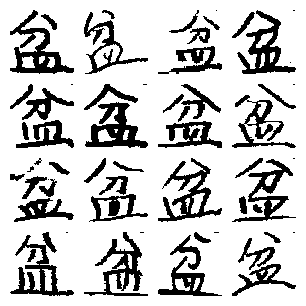 盆盆盆盆
盆盆盆盆
盆盆盆盆
盆盆盆盆